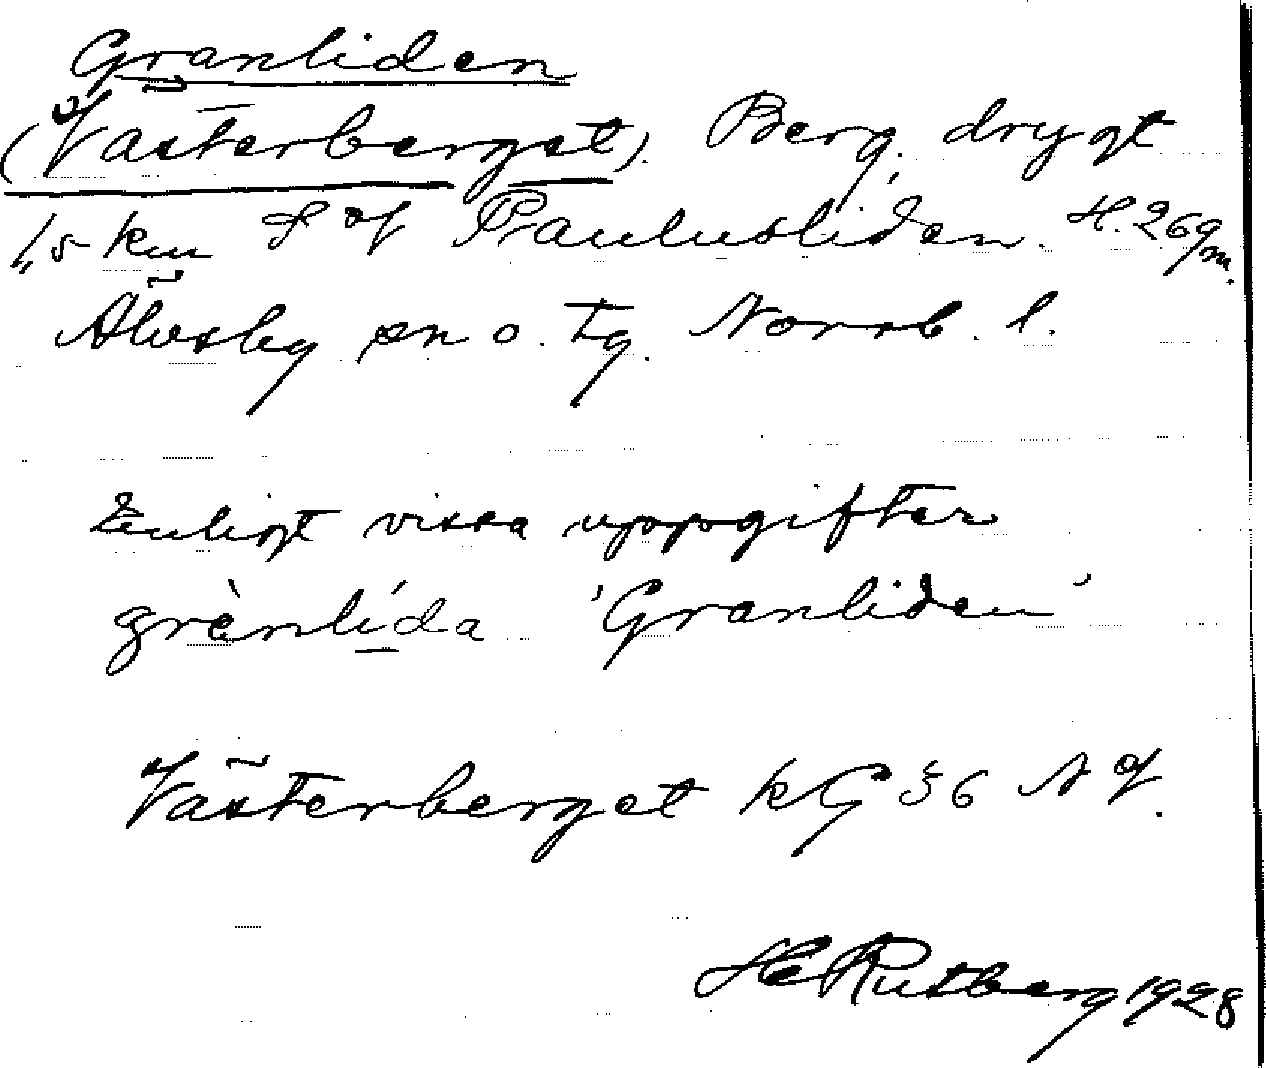 Granliden
(Västerberget). Berg, drygt
1,5 km S of Paulusliden. H. 269 m.
Älvsby sn o. tg. Norrb. l.
Enligt vissa uppgifter
grènlída 'Granliden'
Västerberget kG 36 N of.
H Rutberg 1928